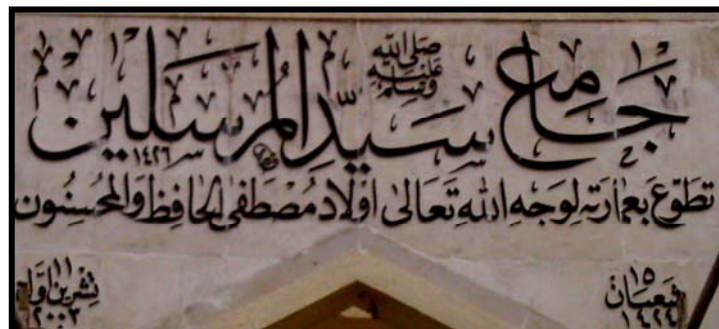 جامع سيد المرسلين صلى الله عليه وسلم
١٤٢٦
تطوع بعمارته لوجه الله تعالى اولاد مصطفى الحافظ والمحسنون
١٥ شعبان ١٤٢٤
١١ تشرين اول ٢٠٠٣